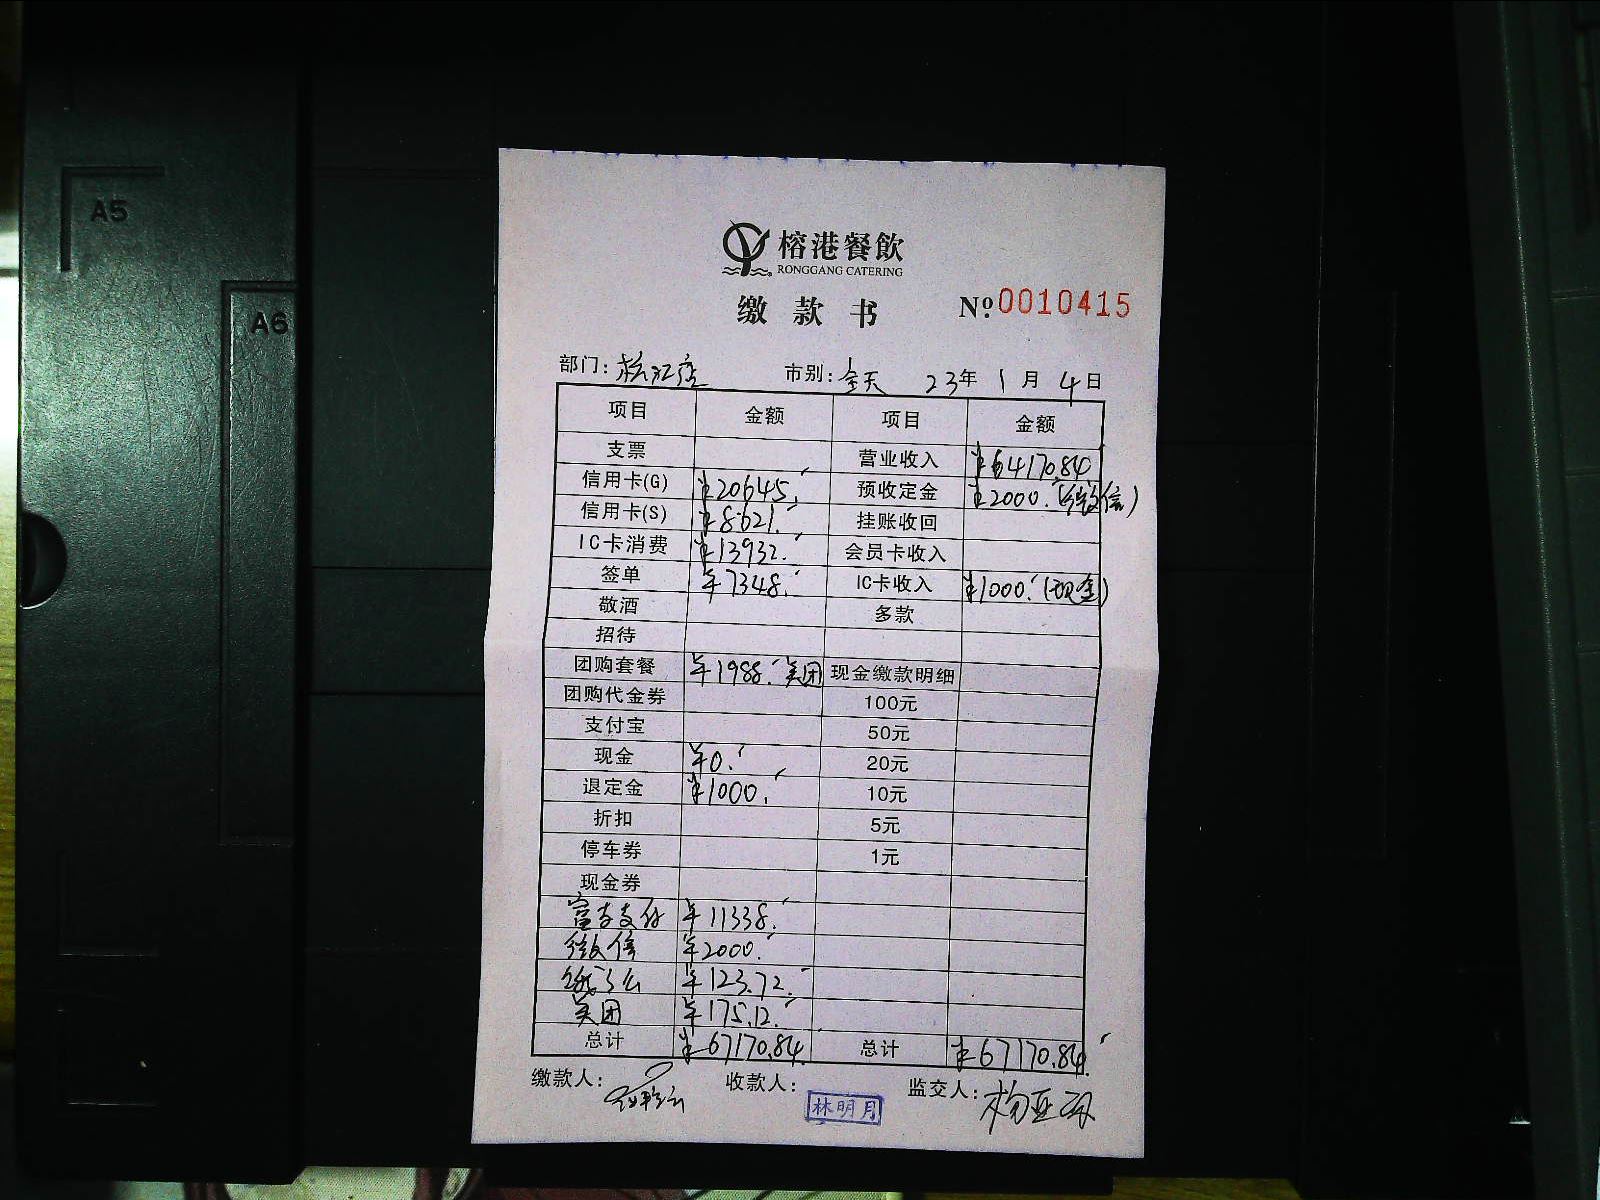 A5
A6
榕港餐飲
RONGGANG CATERING
缴款书 №0010415
部门: 松江店 市别: 全天 23年1月4日
项目 金额 项目 金额
支票 营业收入 ¥64170.84
信用卡(G) ¥20645. 预收定金 ¥2000.(微信)
信用卡(S) ¥8621. 挂账收回
IC卡消费 ¥13932. 会员卡收入
签单 ¥7348. IC卡收入 ¥1000.(现金)
敬酒 多款
招待
团购套餐 ¥1988. 美团 现金缴款明细
团购代金券 100元
支付宝 50元
现金 ¥0. 20元
退定金 ¥1000. 10元
折扣 5元
停车券 1元
现金券
富友支付 ¥11338.
微信 ¥2000.
饿了么 ¥123.72.
美团 ¥175.12.
总计 ¥67170.84. 总计 ¥67170.84.
缴款人: 收款人: 林明月 监交人: